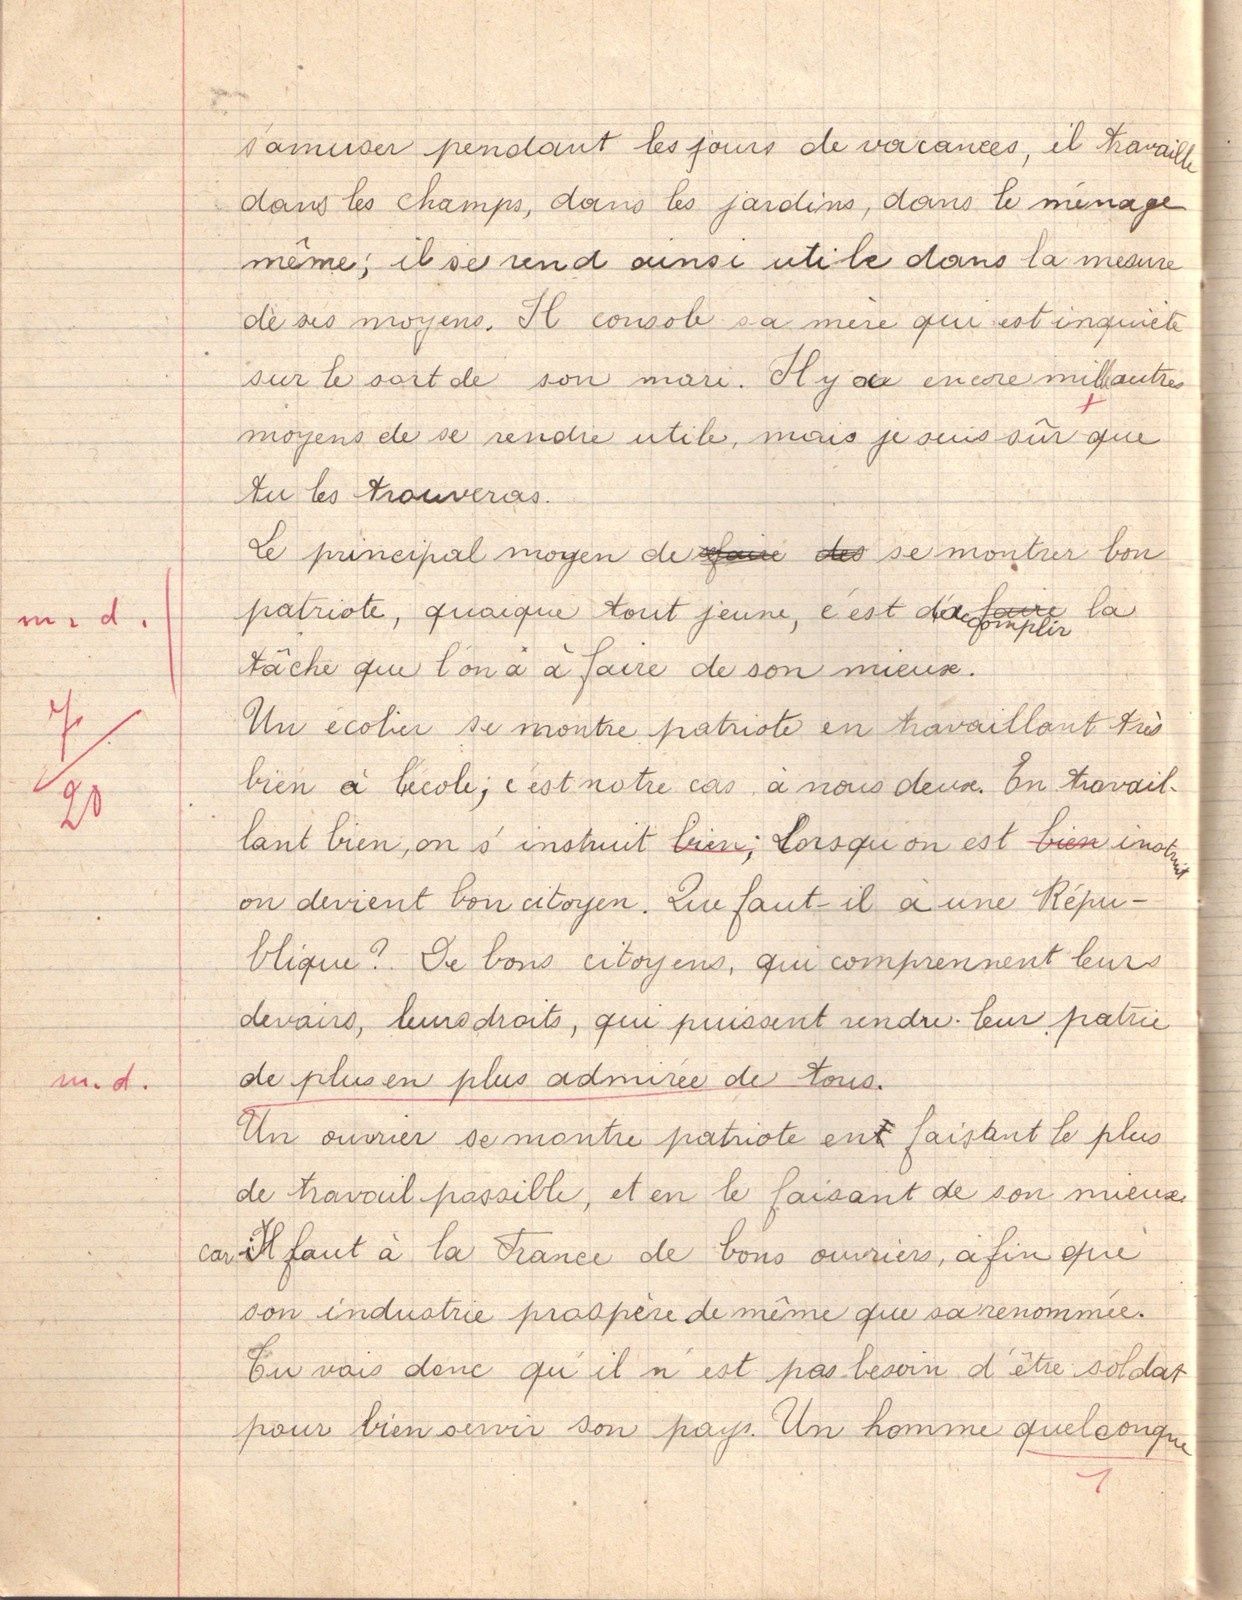 s'amuser pendant les jours de vacances, il travaille
dans les champs, dans les jardins, dans le ménage
même; il se rend ainsi utile dans la mesure
de ses moyens. Il console sa mère qui est inquiète
sur le sort de son mari. Il y a encore mille autres
moyens de se rendre utile, mais je suis sûr que
tu les trouveras.
Le principal moyen de faire des se montrer bon
m. d.
patriote, quoique tout jeune, c'est d'accomplir faire la
tâche que l'on a à faire de son mieux.
Un écolier se montre patriote en travaillant très
7/20
bien à l'école; c'est notre cas à nous deux. En travail-
lant bien, on s'instruit bien; Lorsqu'on est bien instruit
on devient bon citoyen. Que faut-il à une Répu-
blique? De bons citoyens, qui comprennent leurs
devoirs, leurs droits, qui puissent rendre leur patrie
m. d. de plus en plus admirée de tous.
Un ouvrier se montre patriote en faisant le plus
de travail possible, et en le faisant de son mieux
car il faut à la France de bons ouvriers, afin que
son industrie prospère de même que sa renommée.
Tu vois donc qu'il n'est pas besoin d'être soldat
pour bien servir son pays. Un homme quelconque